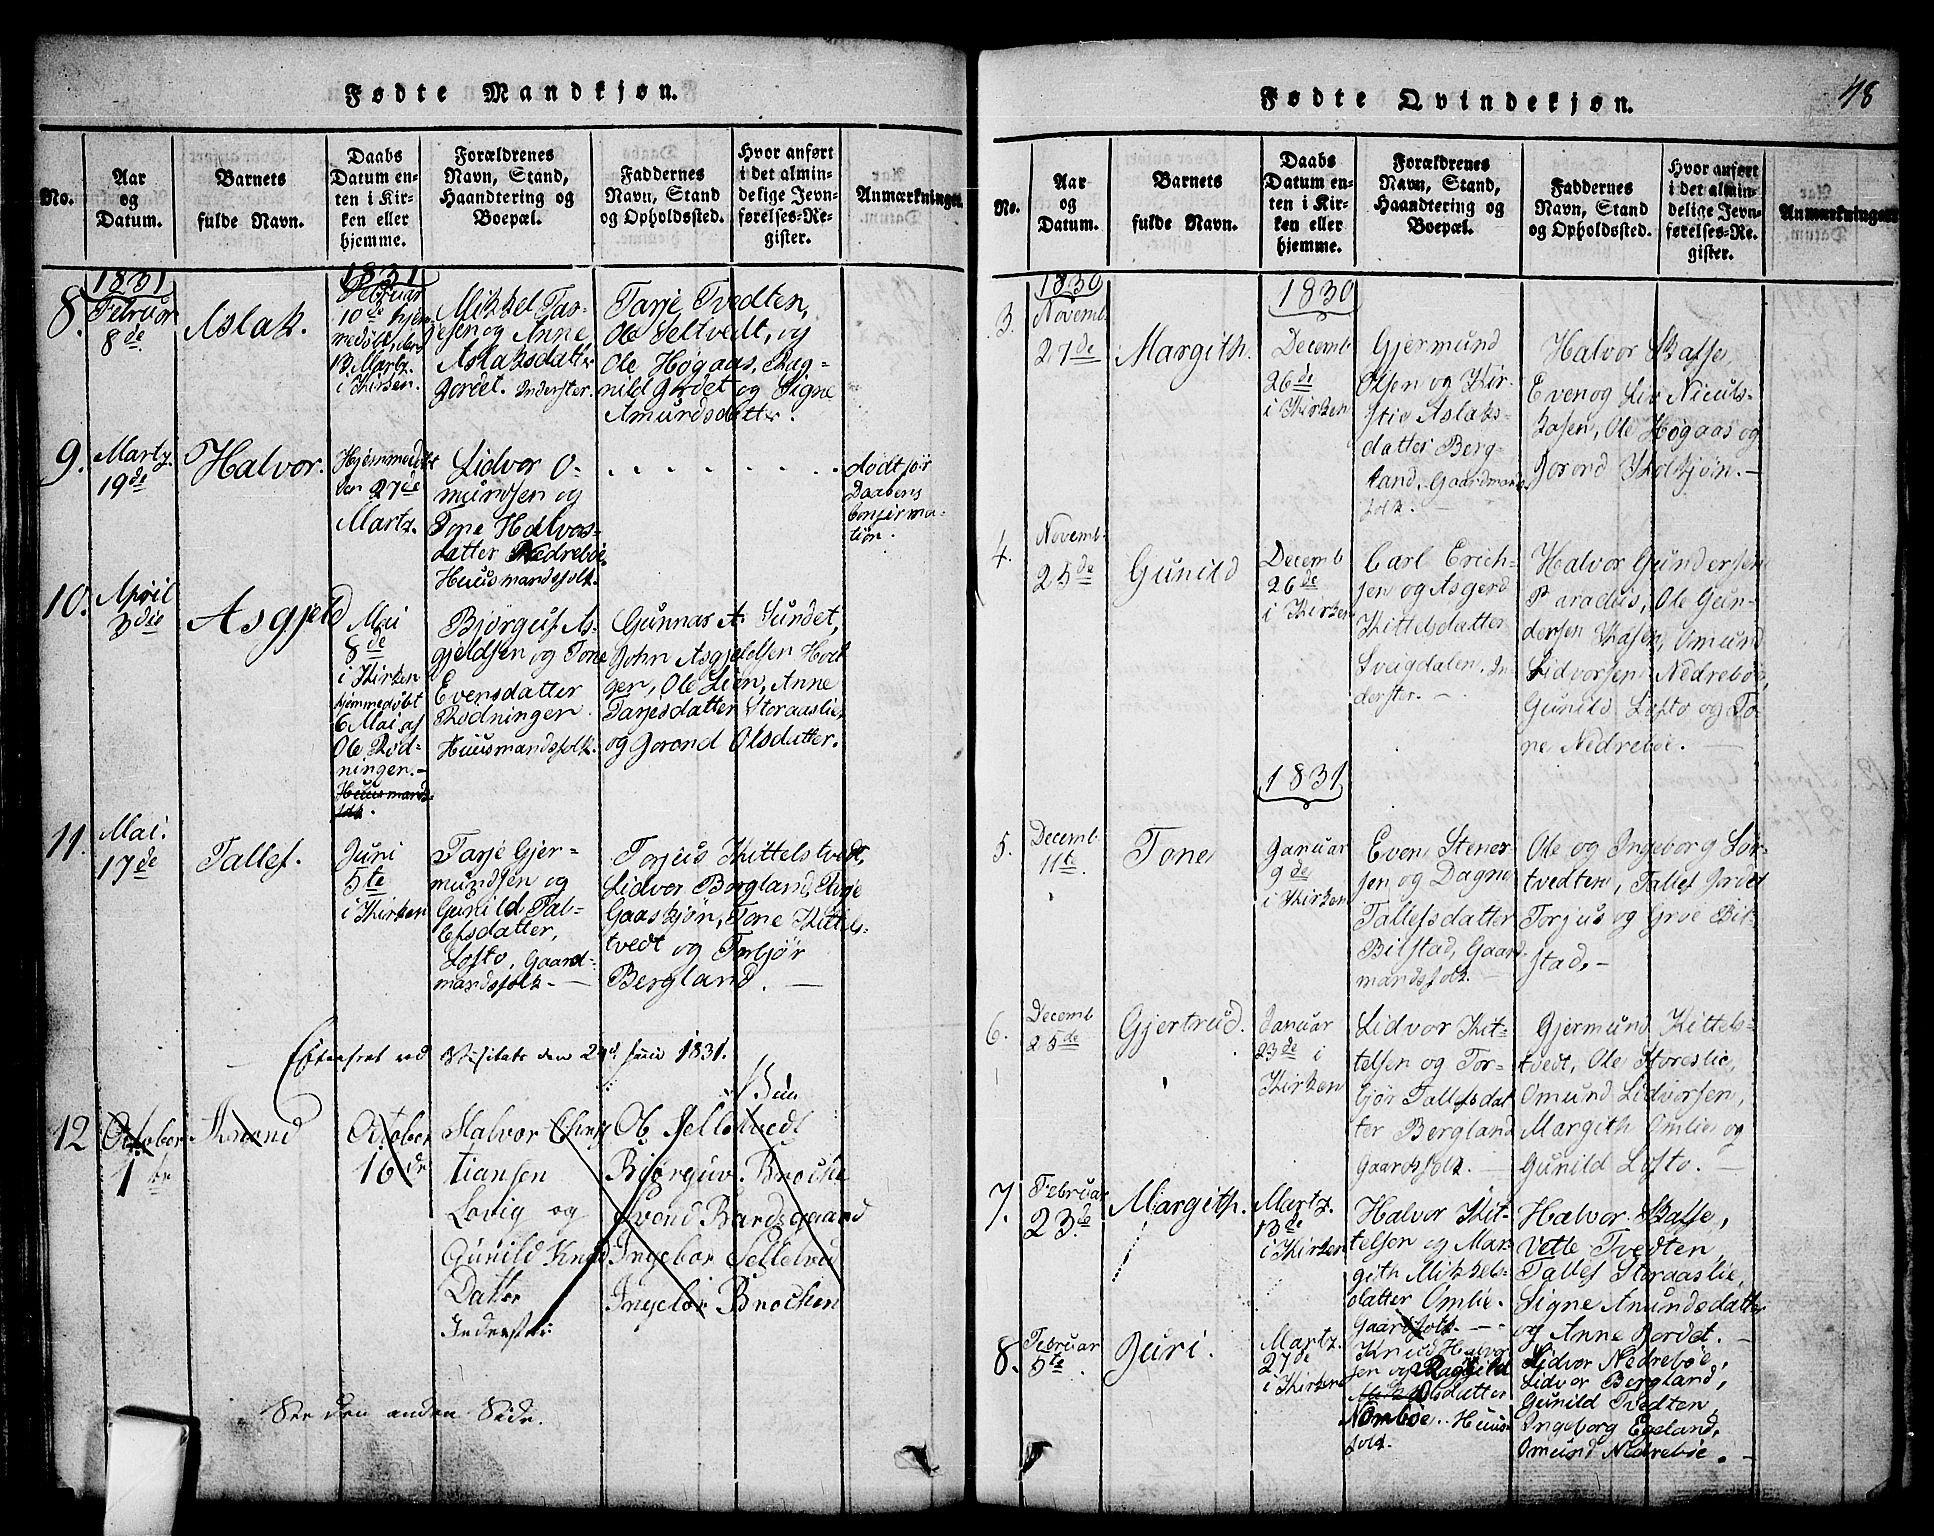 Fødte Mandkjøn.
No.
Aar
og
Datum.
Barnets
fulde Navn.
Daabs
Datum en-
ten i Kir-
ken eller
hjemme.
Forældrenes
Navn, Stand,
Haandtering og
Boepæl.
Faddernes
Navn, Stand
og Opholdssted.
Hvor anført
i det almin-
delige Jevn-
førelses-Re-
gister.
Anmærkninger
1831
8.
Februar
8de
Aslak.
1831
Februar
10de hjem-
medøbt, den
13 Martz.
i Kirken.
Mikkel Tar-
jesen og Anne
Aslaksdatter
Jordet. Inderster.
Tarje Tvedten,
Ole Seltvedt, og
Ole Høgaas, Rag-
nild Jordet og Signe
Amundsdatter.
9.
Martz.
19de
Halvor.
Hjemmedøbt
den 27de
Martz.
Lidvor O-
mundsen og
Tone Halvors-
datter Nedreboe
Huusmandsfolk.
dødt før
Daabens
Confirma-
tion.
10.
April
3die
Asgjeld
Mai
8de
i Kirken
hjemmedøbt
6 Mai af
Ole Rød-
ningen.-
Huusmands
folk.
Bjørguf As-
gjeldsen og Tone
Evensdatter
Rødningen.
Huusmandsfolk.
Gunnar A. Sundet,
John Asgjeldsen Holt
ger, Ole Lien, Anne
Tarjesdatter Storaaslie,
og Jorond Olsdatter.
11.
Mai.
17de
Tallef.
Juni
5te
i Kirken
Tarje Gjer-
mundsen og
Gunild Tal-
lefsdatter,
Lofto, Gaard-
mandsfolk.-
Torjus Kittelstvedt,
Lidvor Bergland, Tarje
Gaaskjøn, Tone Kittels-
tvedt og Torbjør
Bergland. -
Efterseet ved Visitats den 29d Juni 1831.
12
October
1te
Amund
October
16de
Halvor Chris
tiansen
Lovig og
Gunild Knud
Datter
Inderster
Ob Sellestvedt
Biørguv. Brocke
Svend Bardsgaard
Ingebor Sellestvedt
Ingebor Brochen
See den anden Side.
Fødte Qvindekjøn.
48
No.
Aar
og
Datum.
Barnets
fulde Navn.
Daabs
Datum en-
ten i Kir-
ken eller
hjemme.
Forældrenes
Navn, Stand,
Haandtering og
Boepæl.
Faddernes
Navn, Stand
og Opholdssted.
Hvor anført
i det almin-
delige Jevn-
førelses-Re-
gister.
Anmærkninger
1830
3.
Novemb.
27de
Margith.
1830
Decemb
26de
i Kirken
Gjermund
Olsen og Kir-
stie Aslaks-
datter Berg-
land, Gaardmands
folk. -
Halvor Skasse,
Even og Liv Niculs-
kasen, Ole Høgaas og
Jorond Kolskjøn.-
4.
Novemb.
25de
Gunild
Decemb
26de
i Kirken
Carl Erich-
sen og Asgerd
Kittelsdatter
Sveigdalen. In-
derster.-
Halvor Gundersen
Paradiis, Ole Gun-
dersen Kasen, Omund
Lidvorsen Nedreboe,
Gunild Lofto og To-
ne Nedreboe. -
1831
5.
Decemb.
11te
Tone
Januar
9de
i Kirken
Even Stener-
sen og Dagne
Tallefsdatter
Bilstad, Gaard-
mandsfolk.
Ole og Ingeborg Lør-
tvedten, Tallef Jordet
Torjus og Groe Bil-
stad.-
6.
Decemb
25de
Gjertrud.
Januar
23de i
Kirken
Lidvor Kit-
telsen og Tor-
bjør Tallefsdat
ter Bergland
Gaardsfolk. -
Gjermund Kittels-
tvedt, Ole Storeslie,
Omund Lidvorsen,
Margith Omlie og
Gunild Lofto. -
7.
Februar
23de
Margith.
Martz.
13de
i Kirken
Halvor Kit-
telsen og Mar-
gith Mikkels-
datter Omlie.
Gaardsfolk. -
Halvor Skasse,
Vetle Tvedten,
Tallef Storaaslie,
Signe Anundsdatter
og Anne Jordet. -
8.
Februar
5te
Juri.
Martz.
27de
i Kirken
Knud Halvor
sen og Ragnild
Olsdatter
Nomboe. Huus-
folk.
Lidvor Nedreboe,
Lidvor Bergland,
Gunild Tvedten,
Ingeborg Egeland,
Omund Nedreboe. -